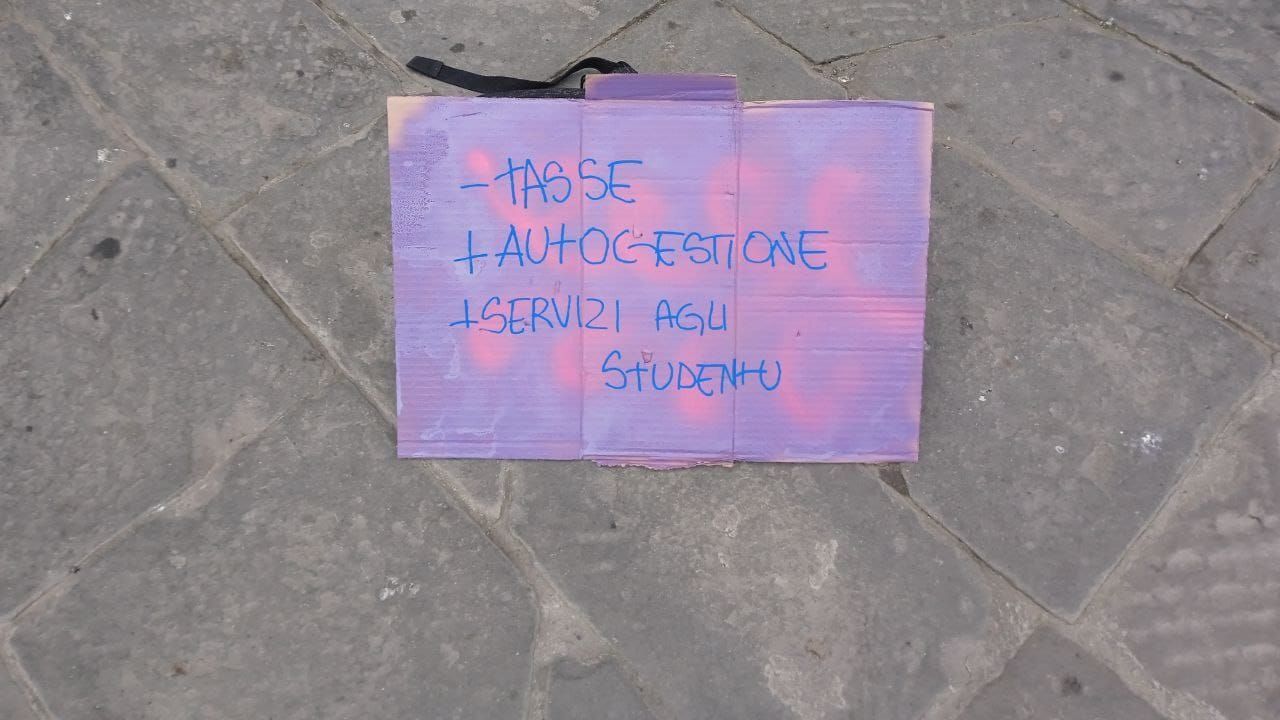 - TASSE
+ AUTOGESTIONE
+ SERVIZI AGLI
STUDENTU